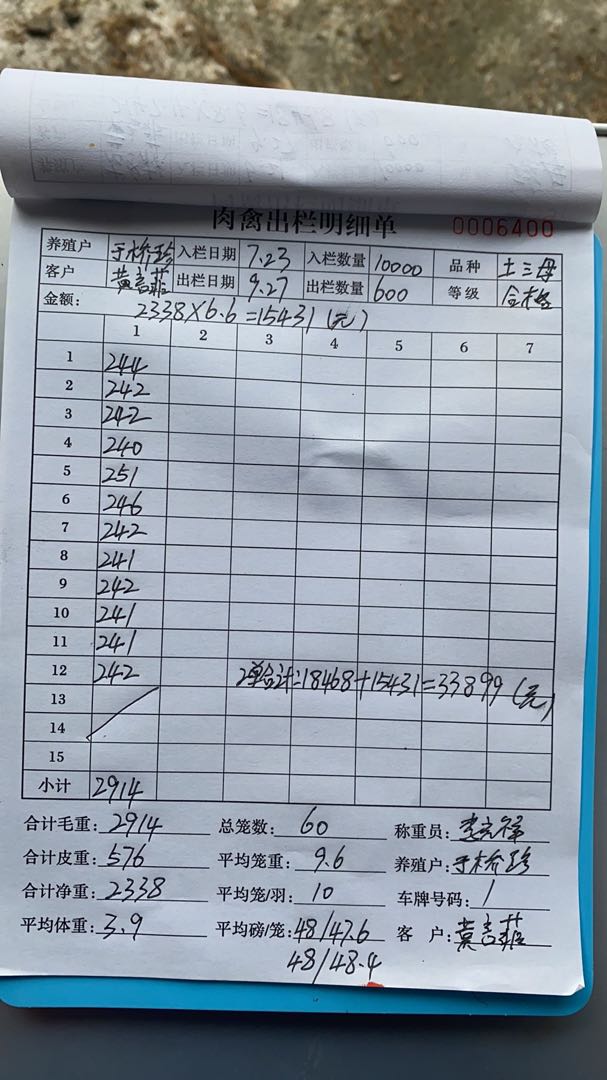 肉禽出栏明细单 0006400
养殖户 于桥珍 入栏日期 7.23 入栏数量 10000 品种 土三母
客户 黄言菲 出栏日期 9.27 出栏数量 600 等级 合格
金额: 2338×6.6=15431(元)
1 2 3 4 5 6 7
1 244
2 242
3 242
4 240
5 251
6 246
7 242
8 241
9 242
10 241
11 241
12 242 2单合计:18468+15431=33899(元)
13
14
15
小计 2914
合计毛重: 2914 总笼数: 60 称重员: 李宗祥
合计皮重: 576 平均笼重: 9.6 养殖户: 于桥珍
合计净重: 2338 平均笼/羽: 10 车牌号码: 1
平均体重: 3.9 平均磅/笼: 48/47.6 客 户: 黄言菲
48/48.4